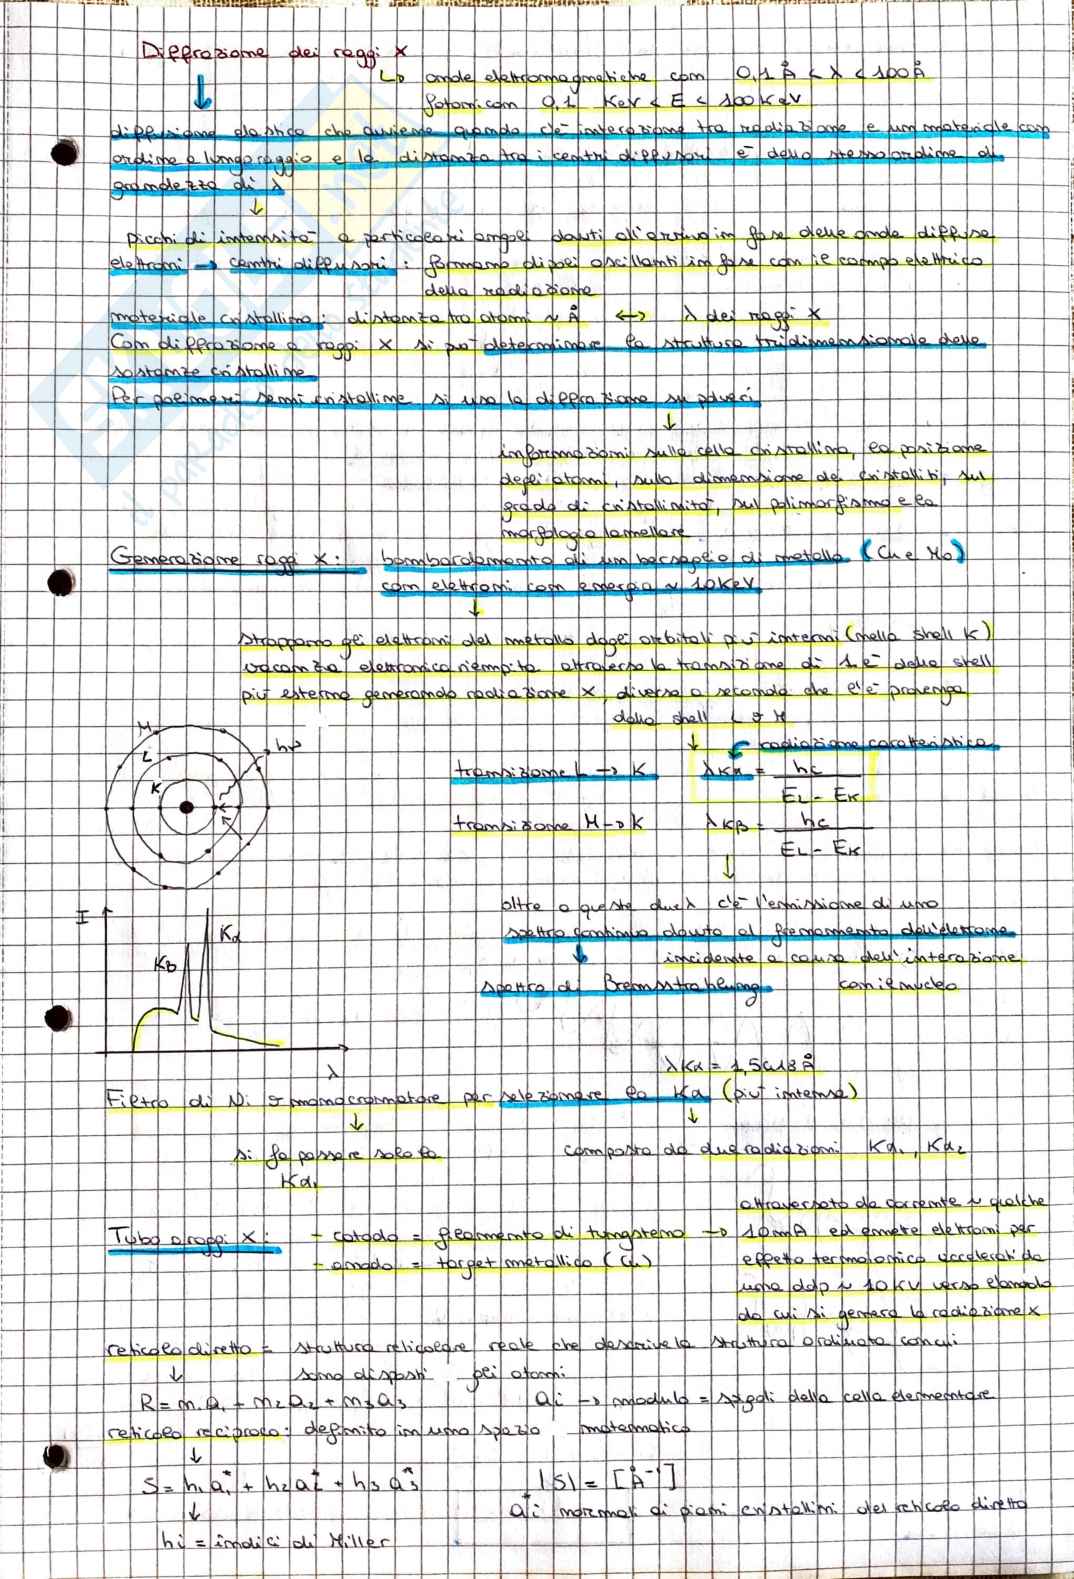 Diffrazione dei raggi X
↳ onde elettromagnetiche con 0,1 Å < λ < 100 Å
fotoni con 0,1 KeV < E < 100 KeV
diffusione elastica che avviene quando c'è interazione tra radiazione e un materiale con
ordine a lungo raggio e la distanza tra i centri diffusori è dello stesso ordine di
grandezza di λ
picchi di intensità a particolari angoli dovuti all'arrivo in fase delle onde diffuse
elettroni → centri diffusori : formano dipoli oscillanti in fase con il campo elettrico
della radiazione
materiale cristallino : distanza tra atomi ~ Å ↔ λ dei raggi X
Con diffrazione a raggi X si può determinare la struttura tridimensionale delle
sostanze cristalline
Per polimeri semicristallini si usa la diffrazione su polveri
informazioni sulla cella cristallina, la posizione
degli atomi, sulla dimensione dei cristalliti, sul
grado di cristallinità, sul polimorfismo e la
morfologia lamellare
Generazione raggi X: bombardamento di un bersaglio di metallo (Cu e Mo)
con elettroni con energia ~ 10 KeV
strappano gli elettroni del metallo dagli orbitali più interni (nella shell K)
vacanza elettronica riempita attraverso la transizione di 1 e⁻ dalla shell
più esterna generando radiazione X, diversa a seconda che l'e⁻ provenga
dalla shell L o M
M
L
K
hν
radiazione caratteristica
transizione L → K λKα = hc / (EL - EK)
transizione M → K λKβ = hc / (EL - EK)
oltre a queste due λ c'è l'emissione di uno
spettro continuo dovuto al frenamento dell'elettrone
incidente a causa dell'interazione
con il nucleo
spettro di Bremsstrahlung
I
Kβ
Kα
λ
λKα = 1,5418 Å
Filtro di Ni o monocromatore per selezionare la Kα (più intensa)
si fa passare solo la
Kα₁
composto da due radiazioni Kα₁, Kα₂
Tubo a raggi X: - catodo = filamento di tungsteno →
- anodo = target metallico (Cu)
attraversato da corrente ~ qualche
10mA ed emette elettroni per
effetto termoionico accelerati da
una ddp ~ 10 KV verso l'anodo
da cui si genera la radiazione X
reticolo diretto = struttura reticolare reale che descrive la struttura ordinata con cui
sono disposti gli atomi
R = n₁a₁ + n₂a₂ + n₃a₃ ai → modulo = spigoli della cella elementare
reticolo reciproco: definito in uno spazio matematico
S = h₁a₁* + h₂a₂* + h₃a₃* |S| = [Å⁻¹]
ai* normali ai piani cristallini del reticolo diretto
hi = indici di Miller